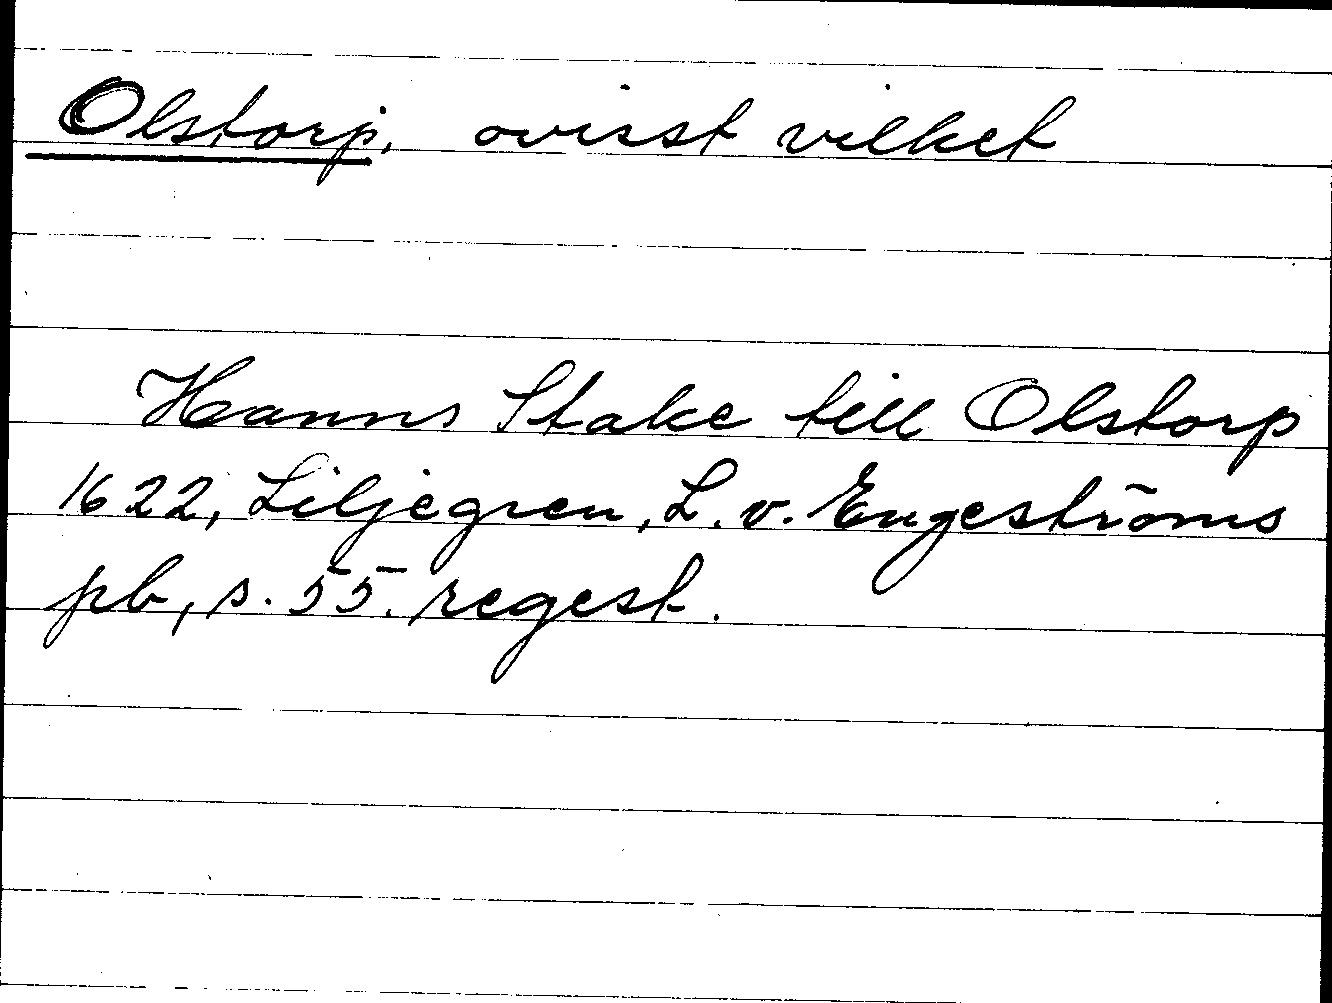 Olstorp, ovisst vilket
Hanns Stake till Olstorp
1622, Liljegren, L. v. Engeströms
pb, s. 55. regest.